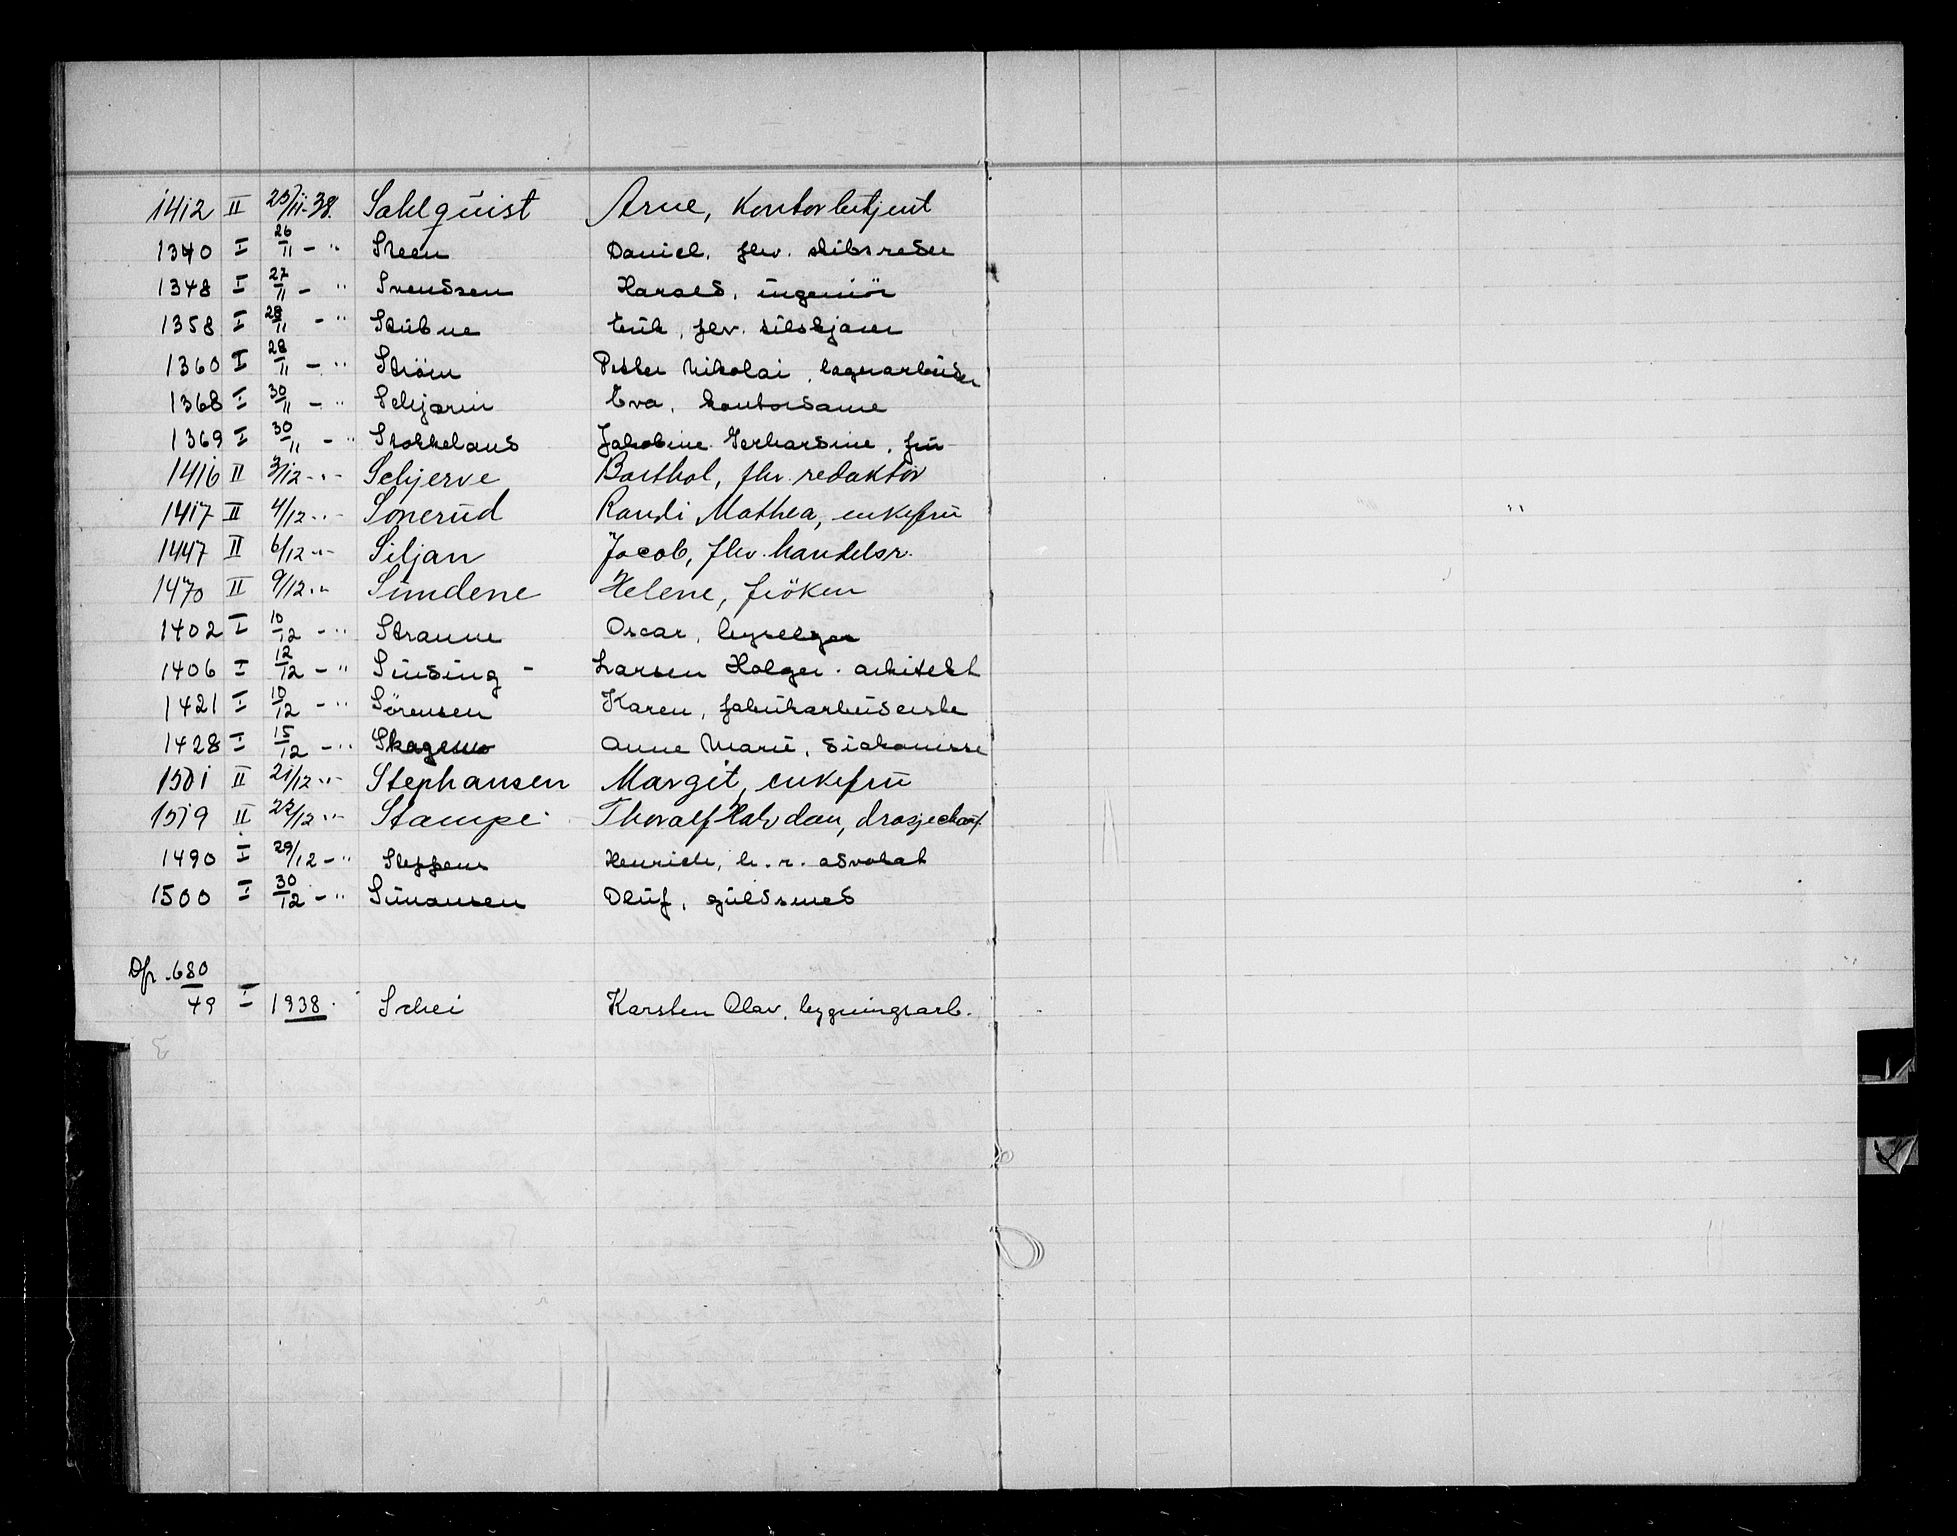 1412 II 25/11-38. Sahlquist Arne, Kontorbetjent
1340 I 26/11 - " Steen Daniel, fhv. skibsreder
1348 I 27/11 - " Svendsen Harald, ingeniör
1358 I 28/11 - " Stübne Erik, fhv.
1360 I 28/11 - " Ström Petter Nikolai, lagerarbeider
1368 I 30/11 - " Schjørin Eva, kontordame
1369 I 30/11 - " Stokkeland Jakobine Gerhardine, frü
1416 II 3/12 - " - Schjerve Barthol, fhv. redaktör
1417 II 4/12 - " - Sonerüd Randi Mathea, enkefrü
1447 II 6/12 - " - Siljan Jacob, fhv. handelsr.
1470 II 9/12 - " Sündene Helene, fröken
1402 I 10/12 - " Stranne Oscar,
1406 I 12/12 - " Sinding - Larsen Holger. arkitekt
1421 I 10/12 - " Sørensen Karen, fabrikarbeiderske
1428 I 15/12 - " Skagemo Anne Marie, diakonisse
1501 II 21/12 - " - Stephansen Margit, enkefrü
1519 II 22/12 - " - Stampe Thoralf Halvdan, drosjechauf.
1490 I 29/12 - " Steffens Henrich, h. r. advokat
1500 I 30/12 - " Simonsen Olüf, güldsmed
Dfr. 680/49 I 1938. Schei Karsten Olav, bygningsarb.